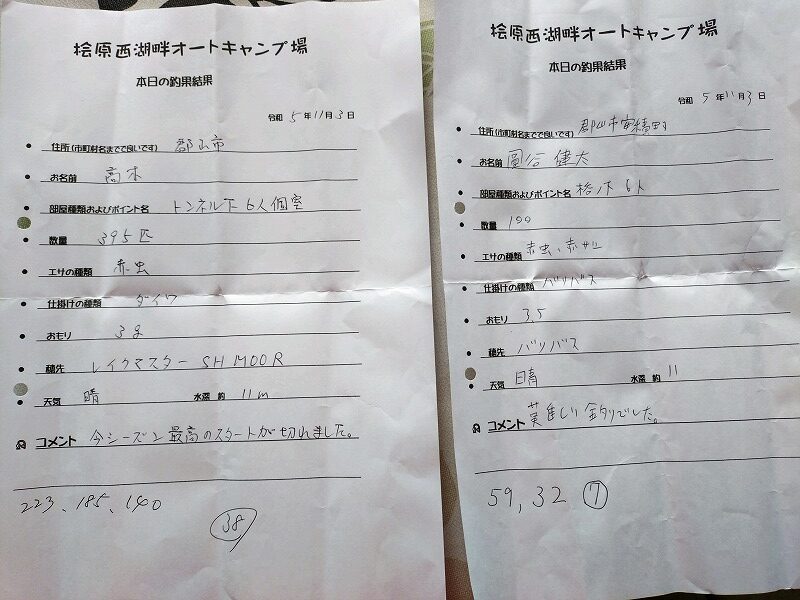 桧原西湖畔オートキャンプ場
本日の釣果結果
令和 5年11月3日
住所(市町村名までで良いです) 郡山市
お名前 高木
部屋種類およびポイント名 トンネル下 6人個室
数量 395匹
エサの種類 赤虫
仕掛けの種類 ダイワ
おもり 3g
穂先 レイクマスター SH MOOR
天気 晴 水深 約 11m
コメント 今シーズン最高のスタートが切れました。
223、185、140
38
桧原西湖畔オートキャンプ場
本日の釣果結果
令和 5年11月3日
住所(市町村名までで良いです) 郡山市安積町
お名前 圓谷 健太
部屋種類およびポイント名 桧ノ下 6人
数量 100
エサの種類 赤虫、赤サシ
仕掛けの種類 バリバス
おもり 3.5
穂先 バリバス
天気 晴 水深 約 11
コメント 難しい釣りでした。
59, 32 ⑦